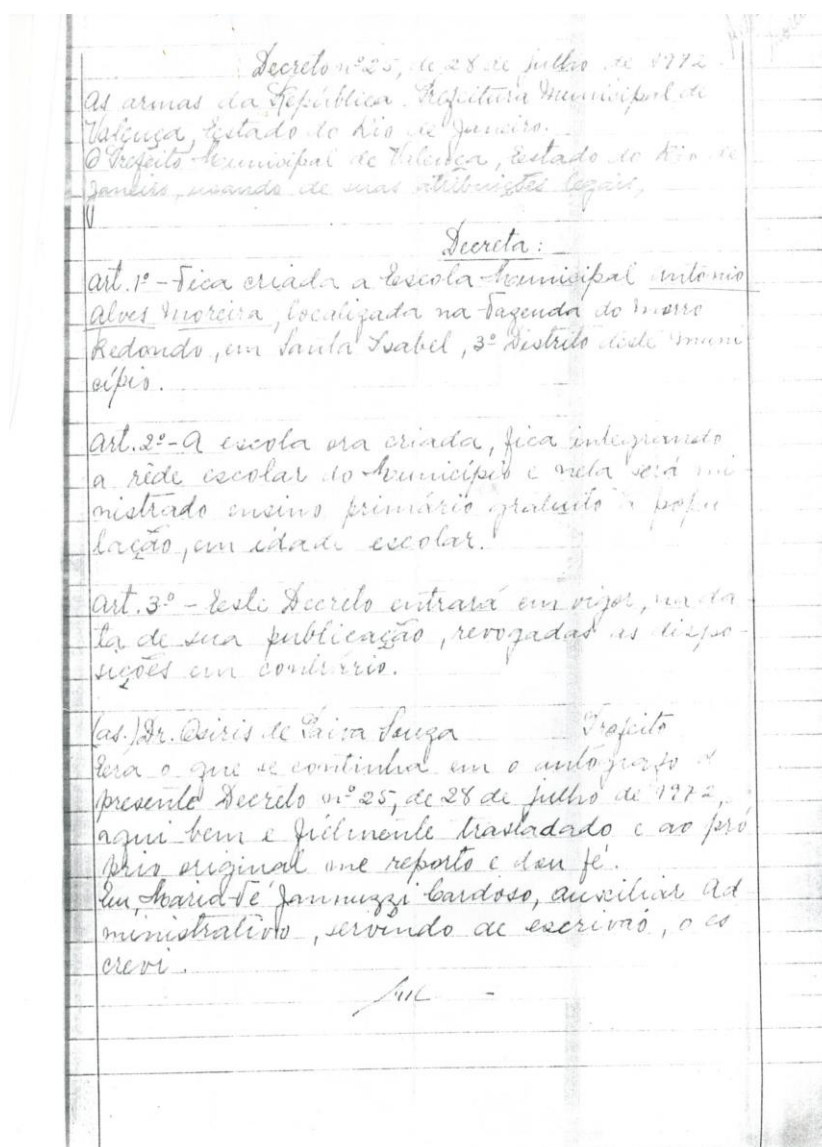 Decreto nº 25, de 28 de julho de 1972
As armas da República. Prefeitura Municipal de
Valença, Estado do Rio de Janeiro.
O Prefeito Municipal de Valença, Estado do Rio de
Janeiro, usando de suas atribuições legais,
Decreta:
Art. 1º - Fica criada a Escola Municipal Antônio
Alves Moreira, localizada na Fazenda do Morro
Redondo, em Santa Isabel, 3º Distrito deste Muni
cípio.
Art. 2º - A escola ora criada, fica integrando
a rêde escolar do Município e nela será mi
nistrado ensino primário gratuito à popu
lação, em idade escolar.
Art. 3º - Este Decreto entrará em vigor, na da
ta de sua publicação, revogadas as dispo-
sições em contrário.
(as.) Dr. Osiris de Paiva Souza Prefeito
Era o que se continha em o autógrafo d
presente Decreto nº 25, de 28 de julho de 1972,
aqui bem e fielmente trasladado e ao pró
prio original me reporto e dou fé.
Eu, Maria Fé Jannuzzi Cardoso, auxiliar Ad
ministrativo, servindo de escrivão, o es
crevi.